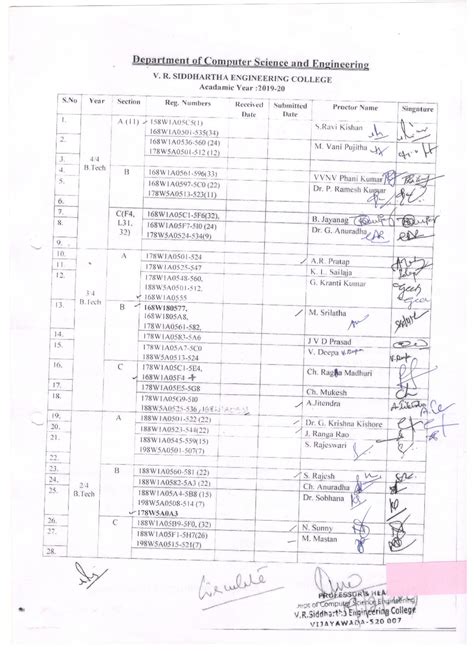 Department of Computer Science and Engineering
V. R. SIDDHARTHA ENGINEERING COLLEGE
Acadamic Year :2019-20
S.No Year Section Reg. Numbers Received Date Submitted Date Proctor Name Singature
1. A (11) 158W1A05C5(1) S.Ravi Kishan
168W1A0501-535(34)
2. 168W1A0536-560 (24) M. Vani Pujitha
3. 178W5A0501-512 (12)
4/4 B.Tech
4. B 168W1A0561-596(33) VVNV Phani Kumar
5. 168W1A0597-5C0 (22) Dr. P. Ramesh Kumar
178W5A0513-523(11)
6.
7. C(F4, L31, 32) 168W1A05C1-5F6(32) B. Jayanag
8. 168W1A05F7-5I0 (24) Dr. G. Anuradha
178W5A0524-534(9)
9.
10. A 178W1A0501-524 A.R. Pratap
11. 178W1A0525-547 K. L. Sailaja
12. 178W1A0548-560, G. Kranti Kumar
188W5A0501-512,
168W1A0555
3/4 B.Tech
13. B 168W180577, M. Srilatha
168W1805A8,
178W1A0561-582,
14. 178W1A0583-5A6 J V D Prasad
15. 178W1A05A7-5C0 V. Deepa
188W5A0513-524
16. C 178W1A05C1-5E4, Ch. Ragha Madhuri
168W1A05F4
17. 178W1A05E5-5G8 Ch. Mukesh
18. 178W1A05G9-5I0 A.Jitendra
188W5A0525-536
19. A 188W1A0501-522 (22) Dr. G. Krishna Kishore
20. 188W1A0523-544(22) J. Ranga Rao
21. 188W1A0545-559(15) S. Rajeswari
198W5A0501-507(7)
22.
23. B 188W1A0560-581 (22) S. Rajesh
24. 188W1A0582-5A3 (22) Ch. Anuradha
25. 188W1A05A4-5B8 (15) Dr. Sobhana
198W5A0508-514 (7)
178W5A0A3
2/4 B.Tech
26. C 188W1A05B9-5F0, (32) N. Sunny
27. 188W1A05F1-5H7(26) M. Mastan
198W5A0515-521(7)
28.
Circulate
PROFESSOR & HEAD
Dept of Computer Science Engineering
V.R.Siddhartha Engineering College
VIJAYAWADA-520 007